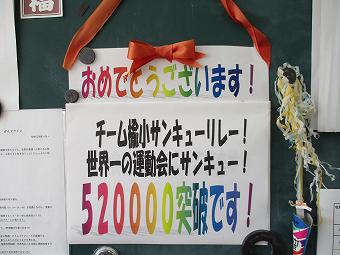 福
おめでとうございます！
チーム楡小サンキューリレー！
世界一の運動会にサンキュー！
520000突破です！